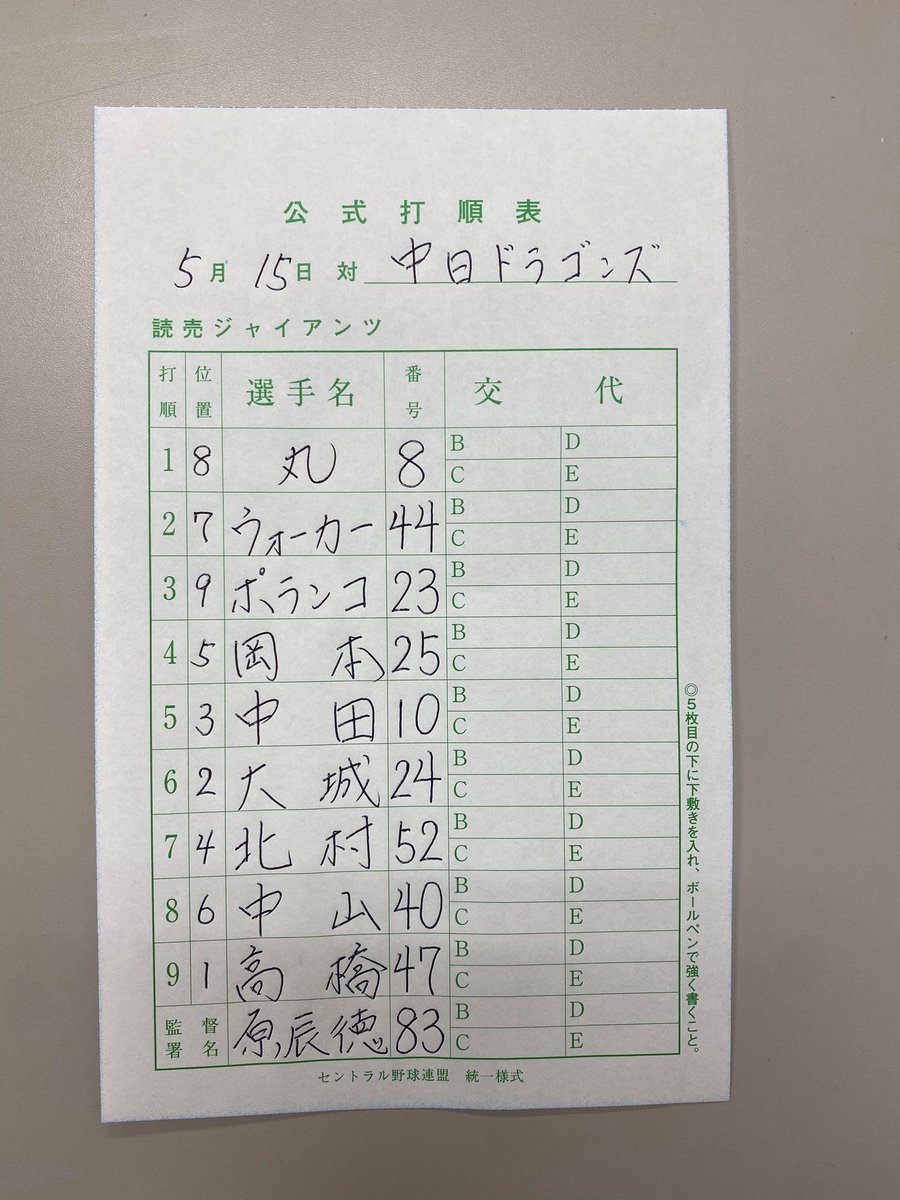 公式打順表
5月15日 対 中日ドラゴンズ
読売ジャイアンツ
打順 位置 選手名 番号 交代
1 8 丸 8 B D C E
2 7 ウォーカー 44 B D C E
3 9 ポランコ 23 B D C E
4 5 岡本 25 B D C E
5 3 中田 10 B D C E
6 2 大城 24 B D C E
7 4 北村 52 B D C E
8 6 中山 40 B D C E
9 1 高橋 47 B D C E
監督署名 原辰徳 83 B D C E
セントラル野球連盟 統一様式
◎5枚目の下に下敷きを入れ、ボールペンで強く書くこと。